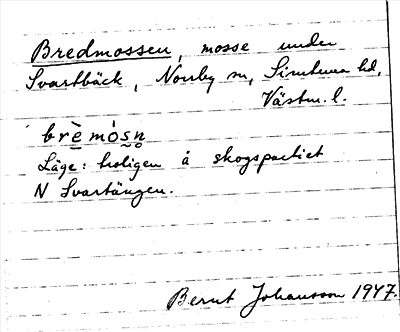 Bredmossen, mosse under
Svartbäck, Norrby sn, Simtuna hd,
Västm. l.
brèmósn̥
Läge: beligen å skogspartiet
N Svartängen.
Bernt Johansson 1947.